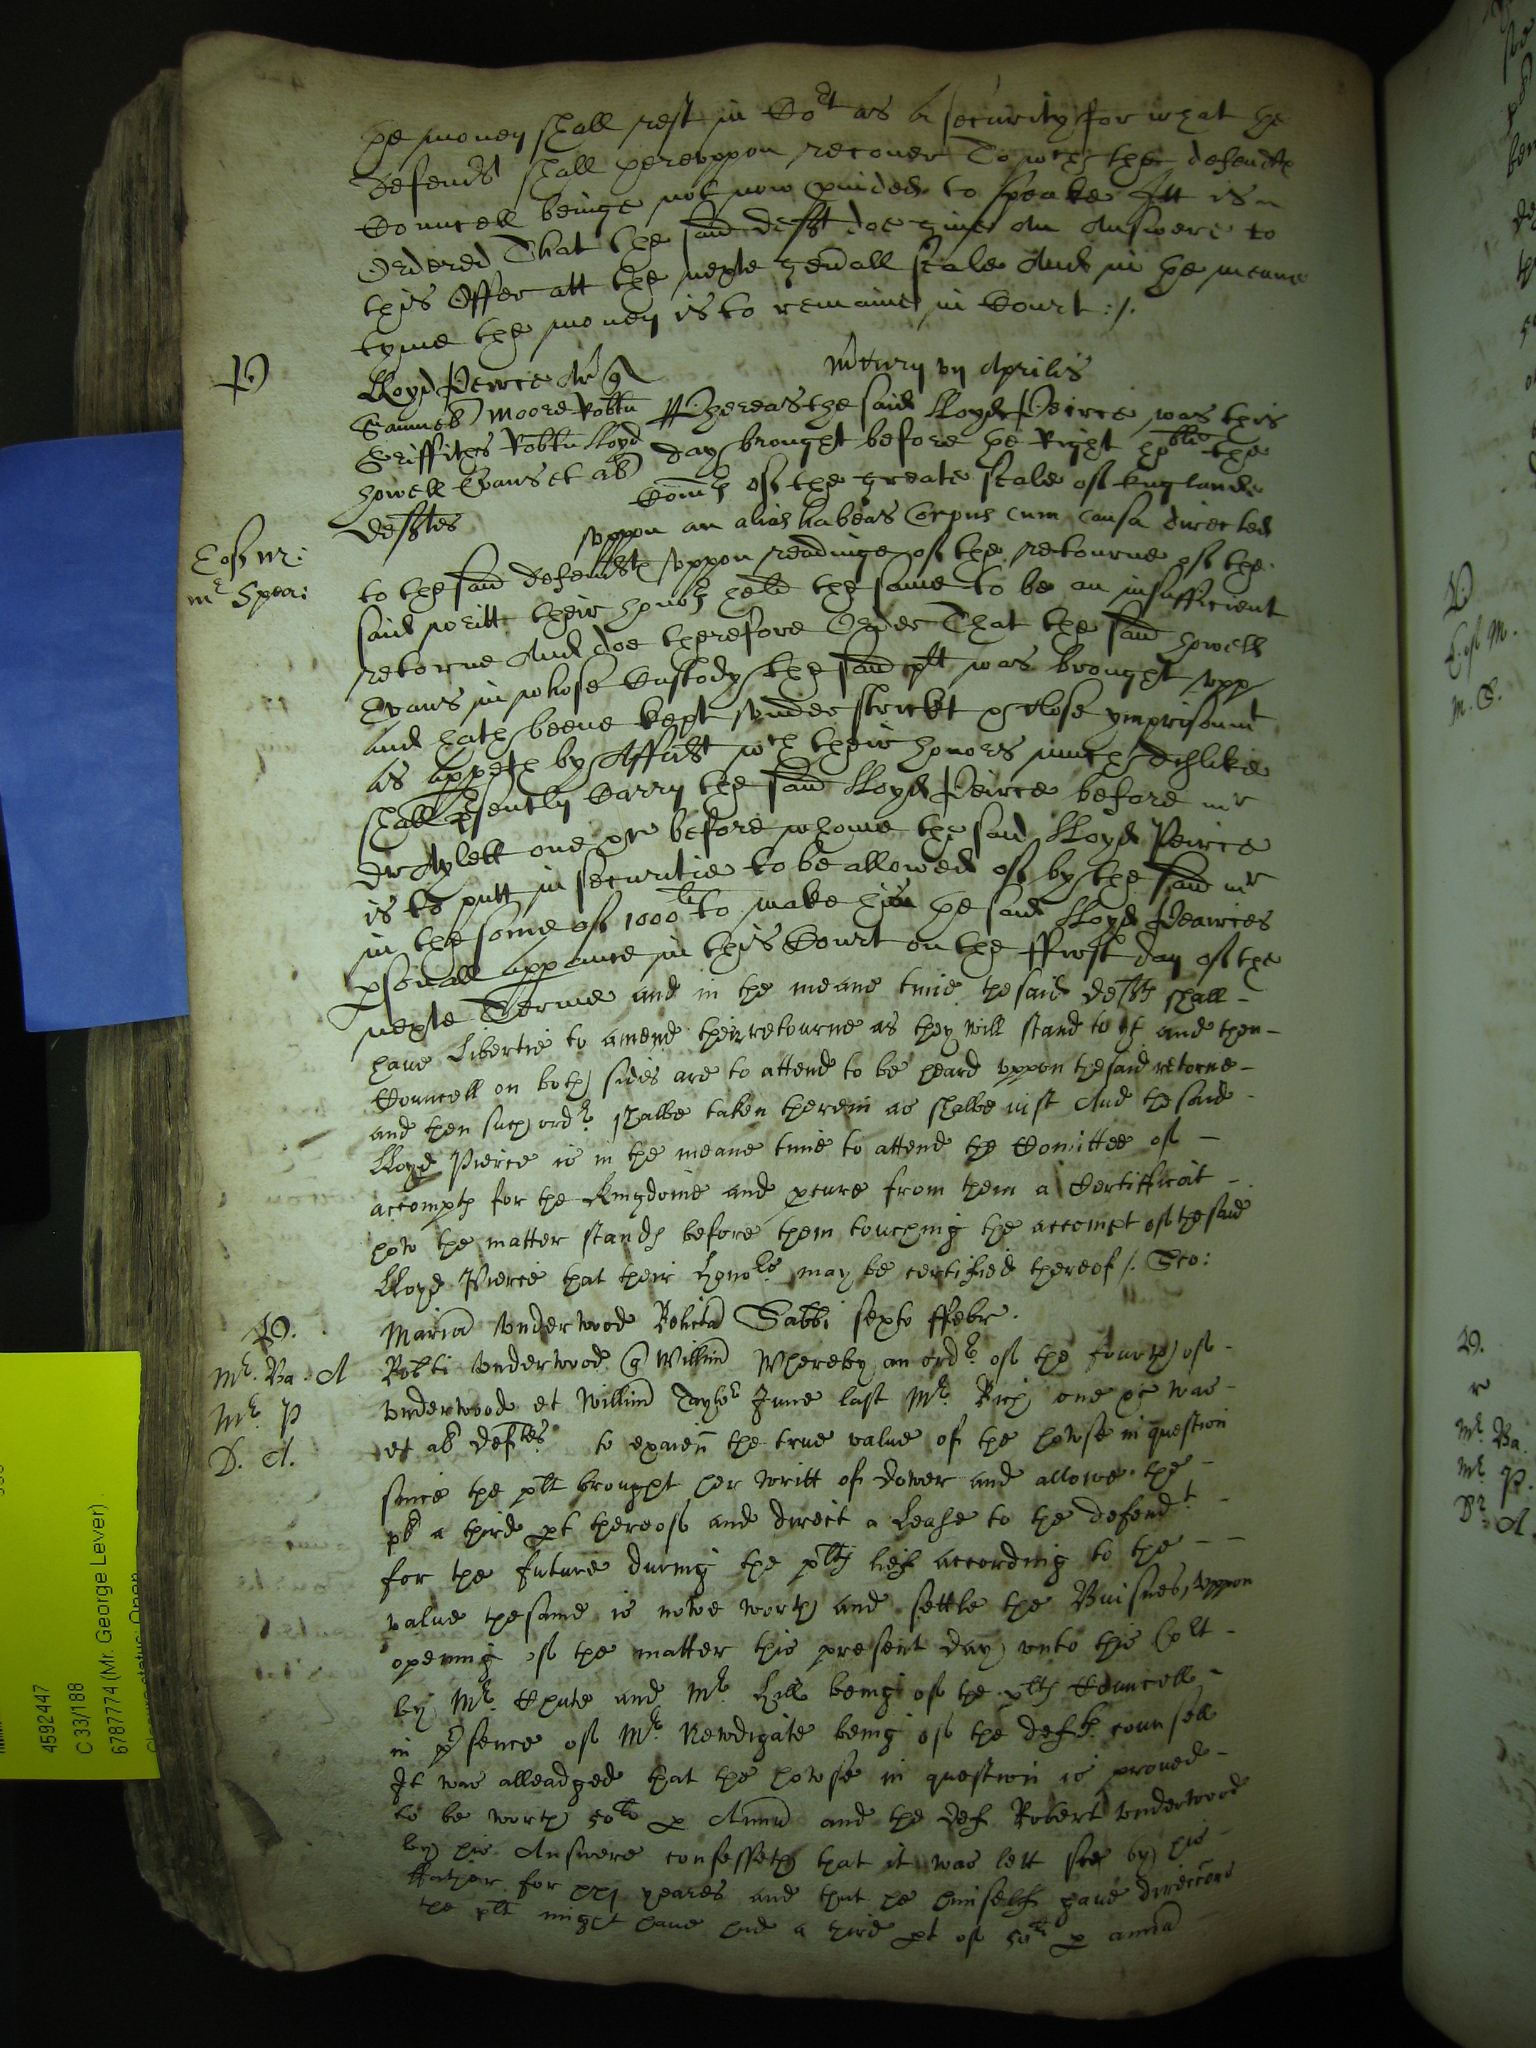 he money shall rest in Cort as a security for what he
defendt shall hereuppon recover To wch the defendtes
Councell beinge not now pvided to speake Itt is
Ordered That the said defft doe give an Answere to
this Offer att the nexte gen'all seale And in he meane
tyme the money is to remaine in Court :/.
P
Lloyd Peirce Ar' q
Mercury vij Aprilis
Samuel Moore Robtu
Whereas the said Lloyd Peirce was this
Griffithes Robtu Lloyd
day brought before he Right hoble the
Howell Evans et al
Comrs of the greate seale of England
Defftes
uppon an alias habeas Corpus cum causa directed
mr Spea:
to the said defendtes uppon readinge of the retourne of the
said writt their honors held the same to be an insufficient
retorne And doe therefore Order That the said Howell
Evans in whose Custody the said plt was brought upp
and hath beene kept under strickt & close ymprisonmt
as appeth by Affidt wch their honors much dislike
shall psently Carry the said Lloyd Peirce before mr
Dr Aylett one &c before whome the said Lloyd Peirce
is to putt in securitie to be allowed of by the said mr
in the some of 1000li to make him he said Lloyd Pearces
psonall appance in this Court on the ffirst day of the
nexte Terme and in the meane time the said deffts shall -
have Libertie to amend their retourne as they will stand to it and then -
Councell on both sides are to attend to be heard uppon the said retorne -
and then such ordr shalbe taken therein as shalbe iust And the said -
Lloyd Pierce is in the meane time to attend the Comittee of -
accompts for the Kingdome and pcure from them a Certifficat -
how the matter stands before them touching the accompt of the said
Lloyd Pierce that their honors may be certified thereof /.
Maria Underwood Relicta
Sabbi sexto ffebr.
Mr. Ba. A
Robti Underwood q Willim
Whereby an ordr of the fourth of -
Mr P
Underwood et Willim Taylor
June last Mr Rich one &c was -
D. A.
et al deftes
to exaien the true value of the howse in question
since the plt brought her writt of dower and allowe the -
plt a third pt thereof and direct a Lease to the defendt -
for the future during the plts lief according to the -
value the same is nowe worth and settle the Buisnes, uppon
opening of the matter this present day unto this Cort -
by Mr Chute and Mr Hill being of the plts Councell -
in psence of Mr Newdigate being of the defts counsell
It was alleadged that the howse in question is proved -
to be worth 50li p Annu and the def Robert Underwood
by his Answere confesseth that it was lett soe by his -
ffather for xxj yeares and that he himself gave direccons
the plt might have had a third pt of 50li p annu
4592447
C 33/188
6787774 (Mr. George Lever)